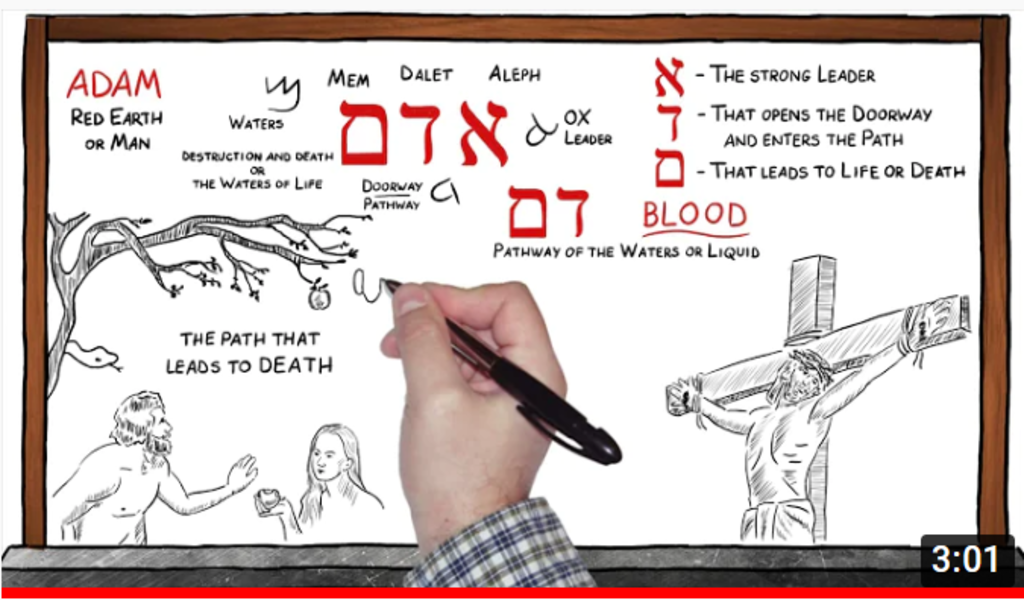 ADAM
RED EARTH
OR MAN
WATERS
DESTRUCTION AND DEATH
OR
THE WATERS OF LIFE
MEM
DALET
ALEPH
אדם
OX
LEADER
DOORWAY
PATHWAY
א - THE STRONG LEADER
ד - THAT OPENS THE DOORWAY
AND ENTERS THE PATH
ם - THAT LEADS TO LIFE OR DEATH
דם
BLOOD
PATHWAY OF THE WATERS OR LIQUID
THE PATH THAT
LEADS TO DEATH
3:01